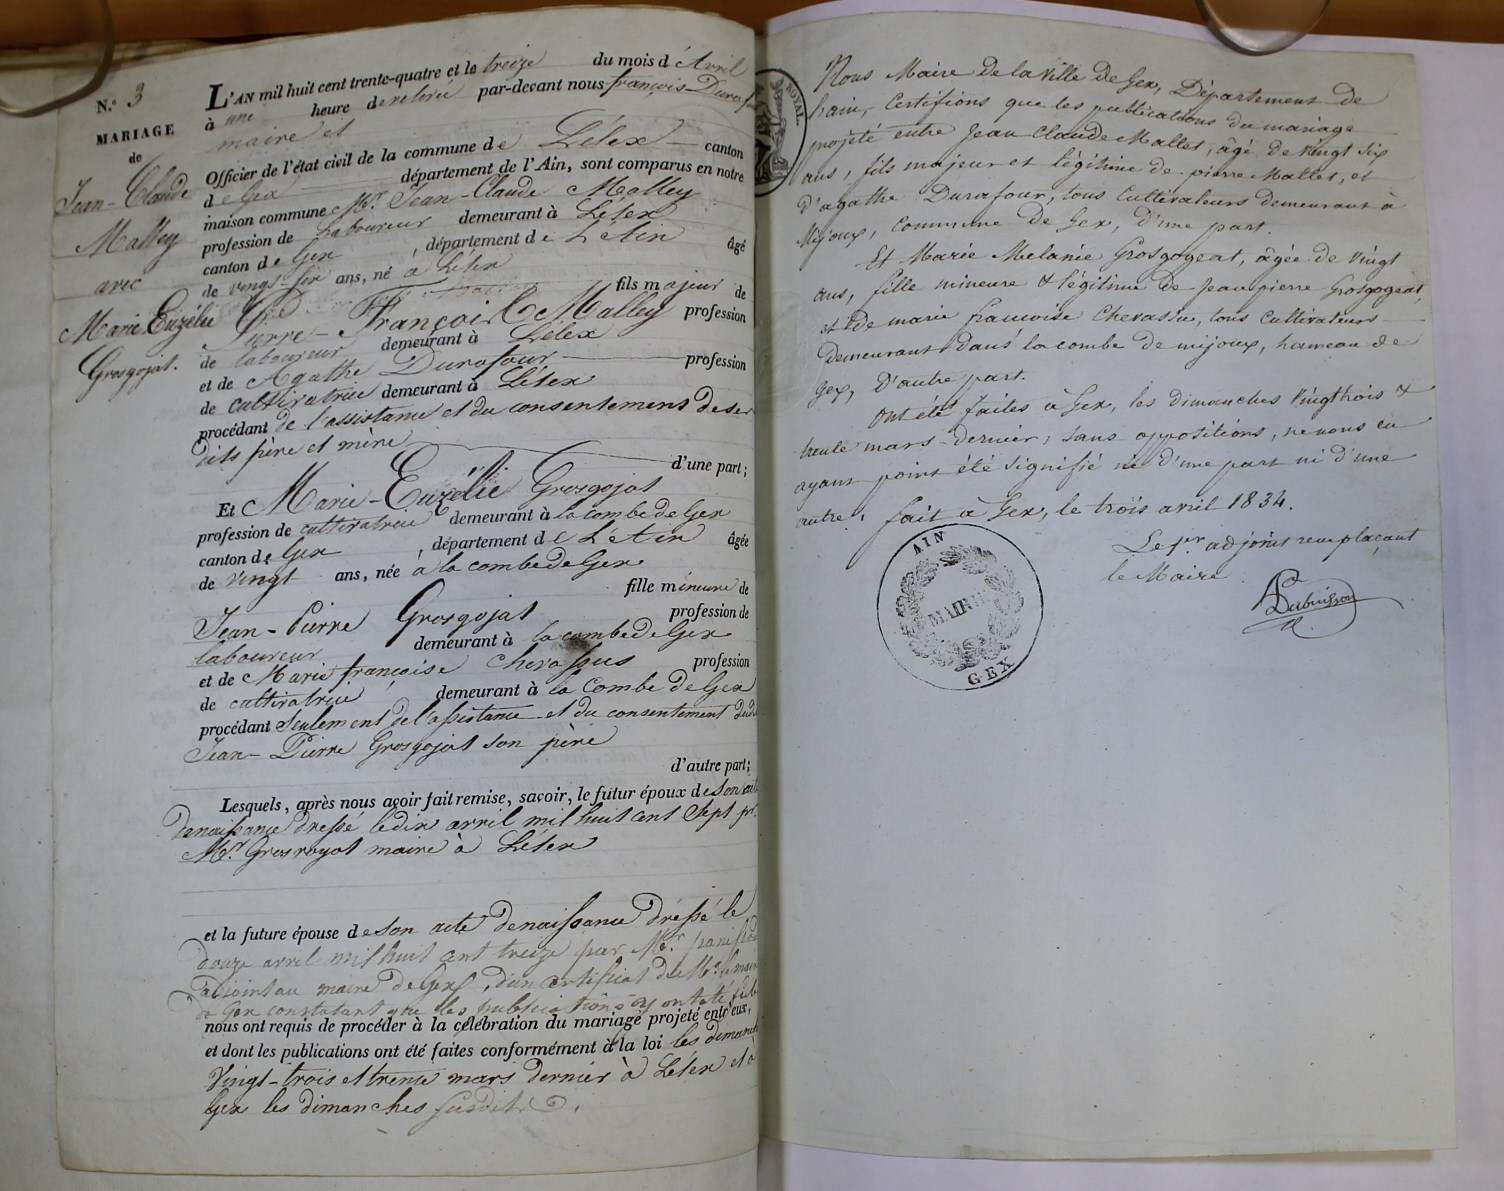 N.° 3
MARIAGE
de
Jean-Claude
Malley
avec
Marie Euzélie
Grosgojat.
L'AN mil huit cent trente-quatre et le treize du mois d'Avril
à une heure de relevée par-devant nous françois Duraf
maire et
Officier de l'état civil de la commune de Lélex canton
de Gex département de l'Ain, sont comparus en notre
maison commune Mr. Jean-Claude Malley
profession de Laboureur demeurant à Lélex
canton de Gex, département de L'Ain âgé
de vingt-six ans, né à Lélex
fils majeur de
Pierre-François Malley profession
de laboureur demeurant à Lélex
et de Agathe Durafour profession
de cultivatrice demeurant à Lélex
procédant de l'assistance et du consentement de ses
dits père et mère
d'une part;
Et Marie-Euzélie Grosgojat
profession de cultivatrice demeurant à la combe de Gex
canton de Gex, département de L'Ain âgée
de vingt ans, née à la combe de Gex
fille mineure de
Jean-Pierre Grosgojat profession de
laboureur demeurant à la combe de Gex
et de Marie françoise Chevassus profession
de cultivatrice, demeurant à la Combe de Gex
procédant seulement de l'assistance et du consentement dudit
Jean-Pierre Grosgojat son père
d'autre part;
Lesquels, après nous avoir fait remise, savoir, le futur époux de son acte
de naissance dressé le dix avril mil huit cent sept pr.
Mr. Grosroyat maire à Lélex
et la future épouse de son acte de naissance dressé le
douze avril mil huit cent treize par Mr.
adjoint au maire de Gex, d'un certificat de Mr. le maire
de Gex constatant que les publications y ont été faites
nous ont requis de procéder à la célébration du mariage projeté entr'eux,
et dont les publications ont été faites conformément à la loi les dimanches
Vingt-trois et trente mars dernier à Lélex et à
Gex les dimanches susdits.
ROYAL.
Nous Maire de la ville de Gex, Département de
l'ain, Certifions que les publications du mariage
projeté entre Jean Claude Mallet, âgé de vingt six
ans, fils majeur et légitime de pierre Mallet, et
d'agathe Durafour, tous Cultivateurs demeurant à
Mijoux, commune de Gex, d'une part.
Et Marie Melanie Grosgogeat, âgée de vingt
ans, fille mineure & légitime de Jean pierre Grosgogeat,
et de marie francoise Chevassu, tous Cultivateurs
demeurant dans la combe de mijoux, hameau de
gex, D'autre part.
Ont été faites à Gex, les dimanches vingt trois &
trente mars dernier, sans oppositions, ne nous en
ayant point été signifié ni d'une part ni d'une
autre, fait à Gex, le trois avril 1834.
Le 1er adjoint remplaçant
le Maire.
Dubuisson
AIN
MAIRIE
GEX